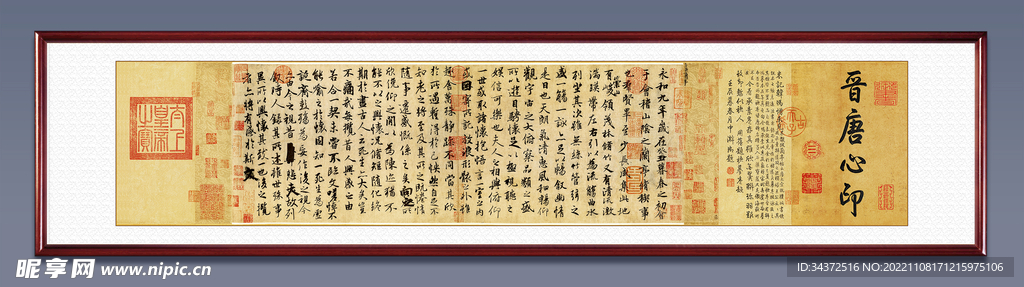 晉唐心印
永和九年歲在癸丑暮春之初會
于會稽山陰之蘭亭脩稧事
也群賢畢至少長咸集此地
有崇山峻領茂林脩竹又有清流激
湍暎帶左右引以為流觴曲水
列坐其次雖無絲竹管弦之
盛一觴一詠亦足以暢敘幽情
是日也天朗氣清惠風和暢仰
觀宇宙之大俯察品類之盛
所以遊目騁懷足以極視聽之
娛信可樂也夫人之相與俯仰
一世或取諸懷抱悟言一室之內
或因寄所託放浪形骸之外雖
趣舍萬殊靜躁不同當其欣
於所遇暫得於己怏然自足不
知老之將至及其所之既惓情
隨事遷感慨係之矣向之所
欣俛仰之閒以為陳迹猶不
能不以之興懷況脩短隨化終
期於盡古人云死生亦大矣豈
不痛哉每攬昔人興感之由
若合一契未嘗不臨文嗟悼不
能喻之於懷固知一死生為虛
誕齊彭殤為妄作後之視今
亦由今之視昔悲夫故列
敘時人錄其所述雖世殊事
異所以興懷其致一也後之攬
者亦將有感於斯文
昵享网 www.nipic.cn
ID:34372516 NO:20221108171215975106